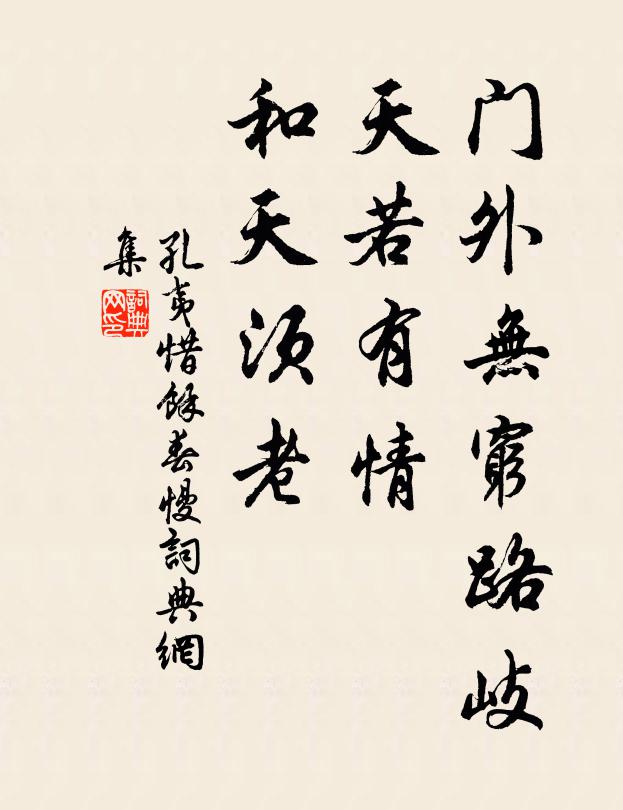 門外無窮路岐
天若有情
和天須老
孔夷惜餘春慢詞典網
集
詞典
网印